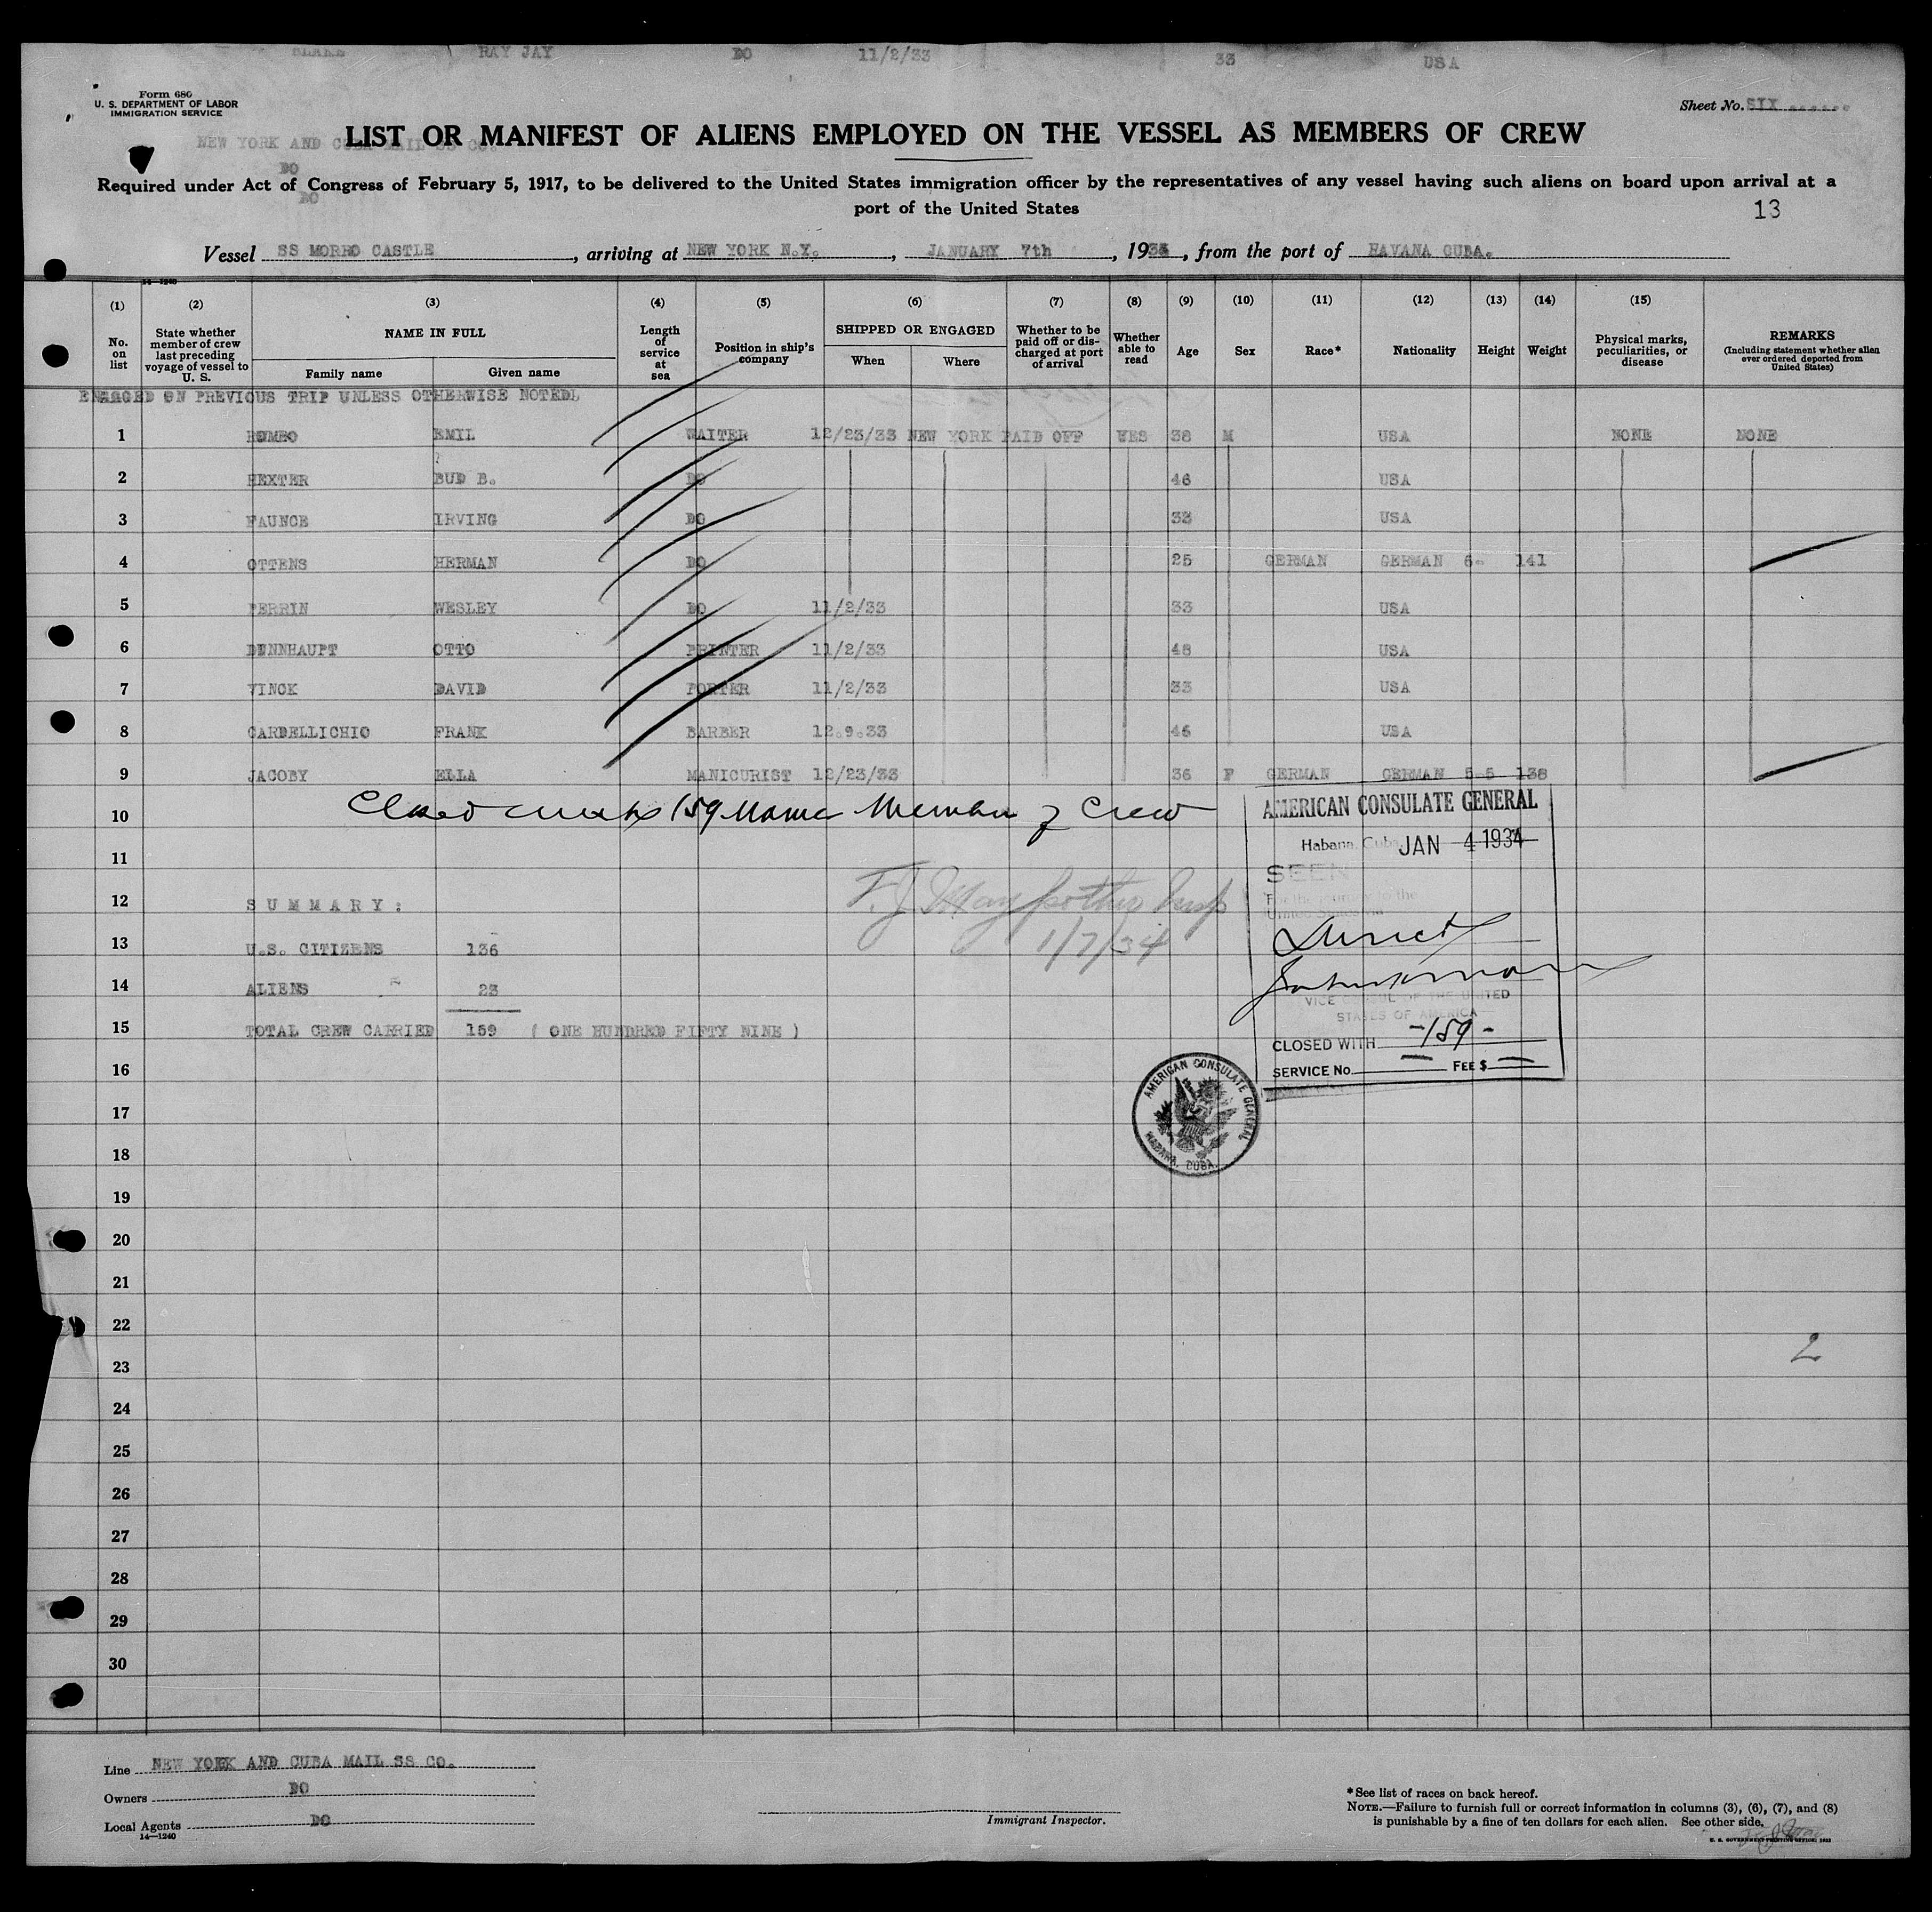 RAY JAY DO 11/2/33 33 USA
Form 680
U. S. DEPARTMENT OF LABOR
IMMIGRATION SERVICE
Sheet No. SIX
NEW YORK AND CUBA MAIL SS CO.
LIST OR MANIFEST OF ALIENS EMPLOYED ON THE VESSEL AS MEMBERS OF CREW
DO
Required under Act of Congress of February 5, 1917, to be delivered to the United States immigration officer by the representatives of any vessel having such aliens on board upon arrival at a
DO
port of the United States
13
Vessel SS MORRO CASTLE, arriving at NEW YORK N.Y., JANUARY 7th, 1934, from the port of HAVANA CUBA.
14—1240
(1) (2) (3) (4) (5) (6) (7) (8) (9) (10) (11) (12) (13) (14) (15)
No. on list
State whether member of crew last preceding voyage of vessel to U. S.
NAME IN FULL
Family name
Given name
Length of service at sea
Position in ship's company
SHIPPED OR ENGAGED
When
Where
Whether to be paid off or discharged at port of arrival
Whether able to read
Age
Sex
Race*
Nationality
Height
Weight
Physical marks, peculiarities, or disease
REMARKS
(Including statement whether alien ever ordered deported from United States)
ENGAGED ON PREVIOUS TRIP UNLESS OTHERWISE NOTEDL
1 ROMEO EMIL WAITER 12/23/33 NEW YORK PAID OFF YES 38 M USA NONE NONE
2 HEXTER BUD B. DO 46 USA
3 FAUNCE IRVING DO 33 USA
4 OTTENS HERMAN DO 25 GERMAN GERMAN 6- 141
5 PERRIN WESLEY DO 11/2/33 33 USA
6 DUNNHAUPT OTTO PRINTER 11/2/33 48 USA
7 VINCK DAVID PORTER 11/2/33 33 USA
8 CARDELLICHIO FRANK BARBER 12.9.33 46 USA
9 JACOBY ELLA MANICURIST 12/23/33 36 F GERMAN GERMAN 5-5 138
10 Closed with 159 Name Members of Crew
AMERICAN CONSULATE GENERAL
Habana, Cuba JAN 4 1934
11
SEEN
For the journey to the
United States via
12 SUMMARY:
F. J. Insp
Direct
13 U.S. CITIZENS 136
1/7/34
14 ALIENS 23
VICE CONSUL OF THE UNITED
STATES OF AMERICA
15 TOTAL CREW CARRIED 159 ( ONE HUNDRED FIFTY NINE )
CLOSED WITH -159-
16
SERVICE No. — FEE $ —
AMERICAN CONSULATE GENERAL
HABANA, CUBA.
17
18
19
20
21
22
2
23
24
25
26
27
28
29
30
Line NEW YORK AND CUBA MAIL SS CO.
Owners DO
Local Agents DO
14—1240
Immigrant Inspector.
*See list of races on back hereof.
NOTE.—Failure to furnish full or correct information in columns (3), (6), (7), and (8)
is punishable by a fine of ten dollars for each alien. See other side.
U. S. GOVERNMENT PRINTING OFFICE: 1933